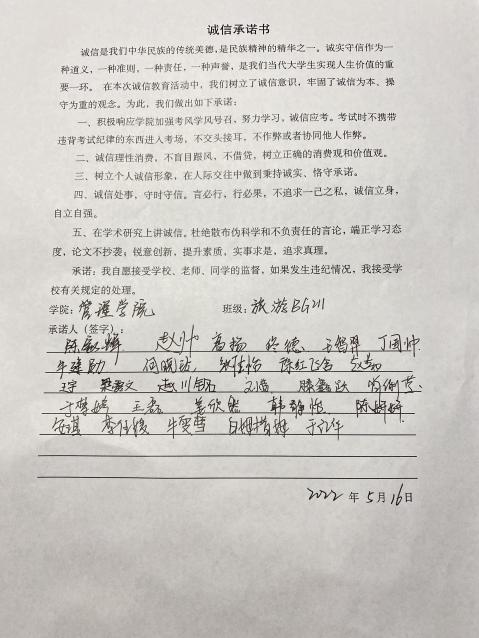 诚信承诺书
诚信是我们中华民族的传统美德，是民族精神的精华之一。诚实守信作为一
种道义，一种准则，一种责任，一种声誉，是我们当代大学生实现人生价值的重
要一环。在本次诚信教育活动中，我们树立了诚信意识，牢固了诚信为本、操
守为重的观念。为此，我们做出如下承诺：
一、积极响应学院加强考风学风号召，努力学习，诚信应考。考试时不携带
违背考试纪律的东西进入考场，不交头接耳，不作弊或者协同他人作弊。
二、诚信理性消费，不盲目跟风，不借贷，树立正确的消费观和价值观。
三、树立个人诚信形象，在人际交往中做到秉持诚实、恪守承诺。
四、诚信处事，守时守信。言必行，行必果，不追求一己之私，诚信立身，
自立自强。
五、在学术研究上讲诚信。杜绝散布伪科学和不负责任的言论，端正学习态
度，论文不抄袭；锐意创新，提升素质，实事求是，追求真理。
承诺：我自愿接受学校、老师、同学的监督，如果发生违纪情况，我接受学
校有关规定的处理。
学院：管理学院 班级：旅游BG211
承诺人（签字）：
赵帅 高扬 佟德 丁国帅
陈红飞
王宇 赵川 滕鑫跃
王磊 姜欣然 韩静怡 陈婷婷
安琪 李佳骏 牛雯慧
2022 年 5 月 16 日